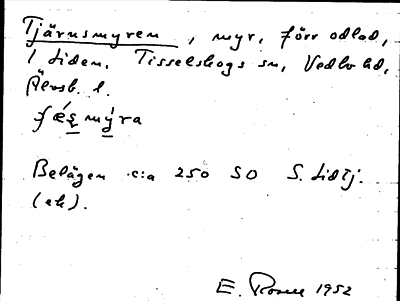 Tjärnsmyren, myr, förr odlad,
1 Liden. Tisselskogs sn, Vedbo hd,
Älvsb. l.
mýra
Belägen c:a 250 SO S. Lidtj.
(ek).
E. Rosell 1952